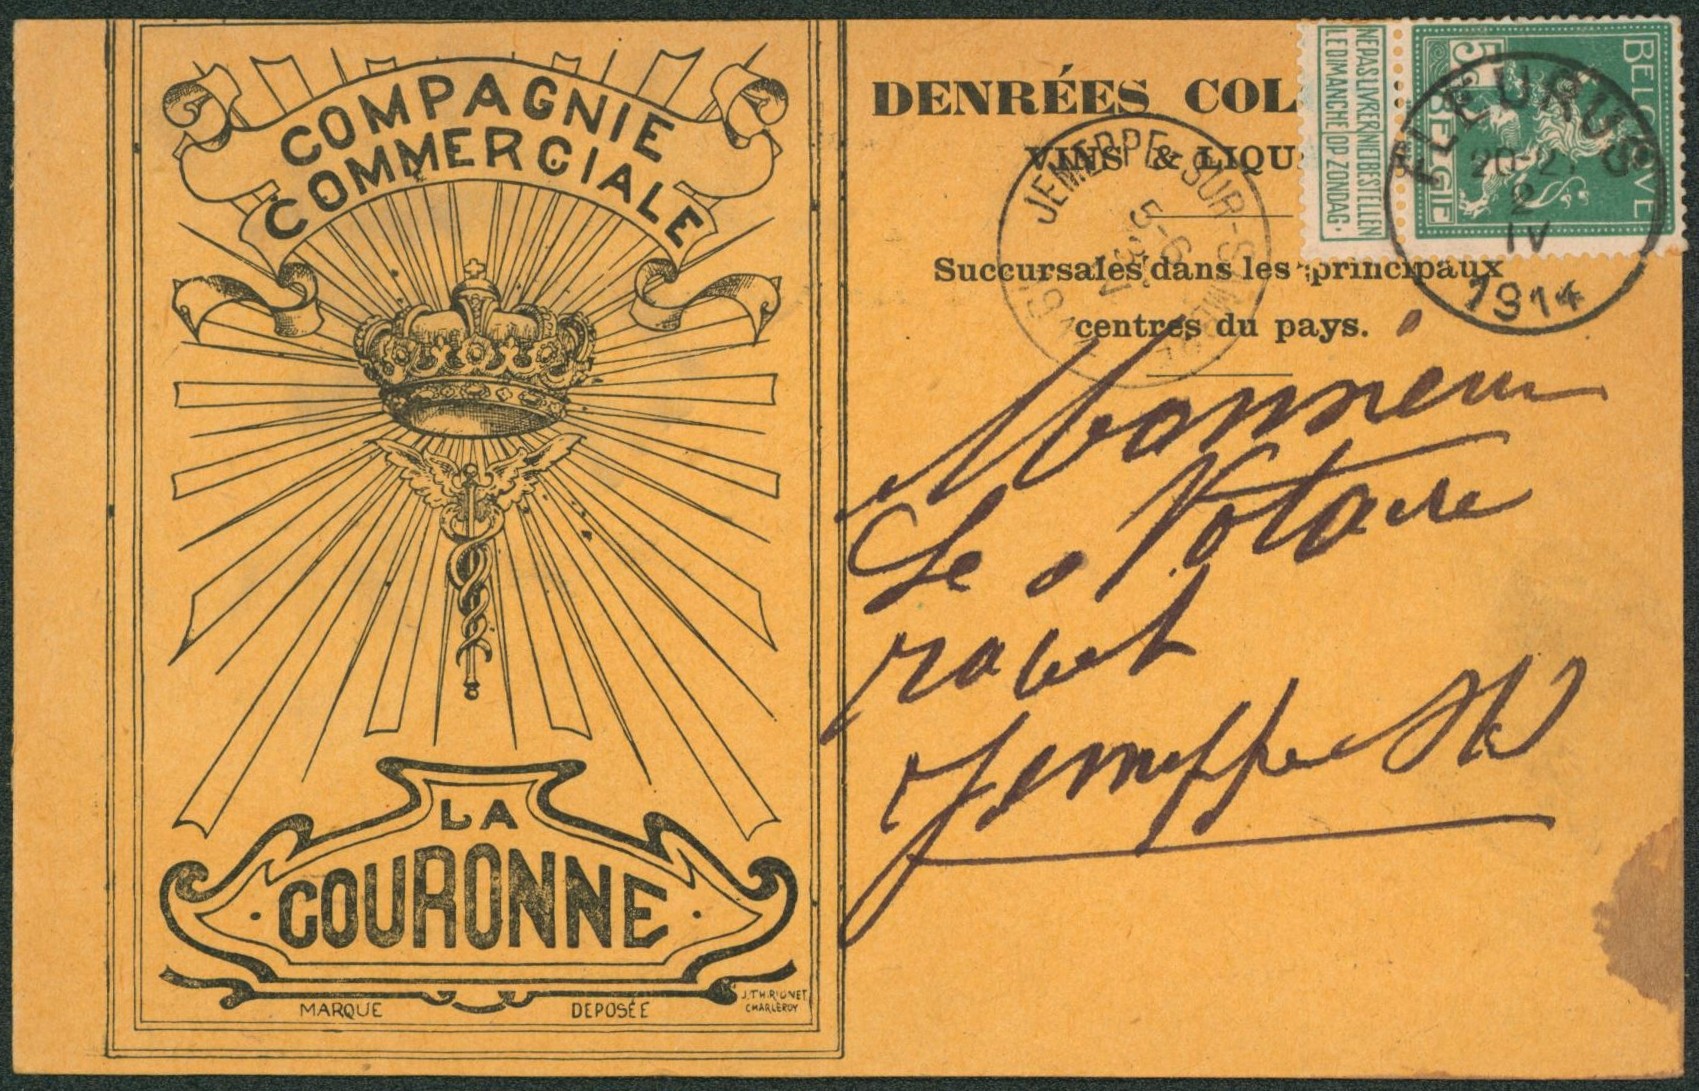 COMPAGNIE
COMMERCIALE
LA
COURONNE
MARQUE DEPOSÉE
CHARLEROY
DENRÉES COL
VINS & LIQU
Succursales dans les principaux
centres du pays.
NE PAS LIVRER NIET BESTELLEN
LE DIMANCHE OP ZONDAG.
BELGIQUE
5
BELGIË
FLEURUS
20-21
2
IV
1914
JEMEPPE-SUR-SAMBRE
5-6
3
IV
Monsieur
Le Notaire
Jemeppe s/s